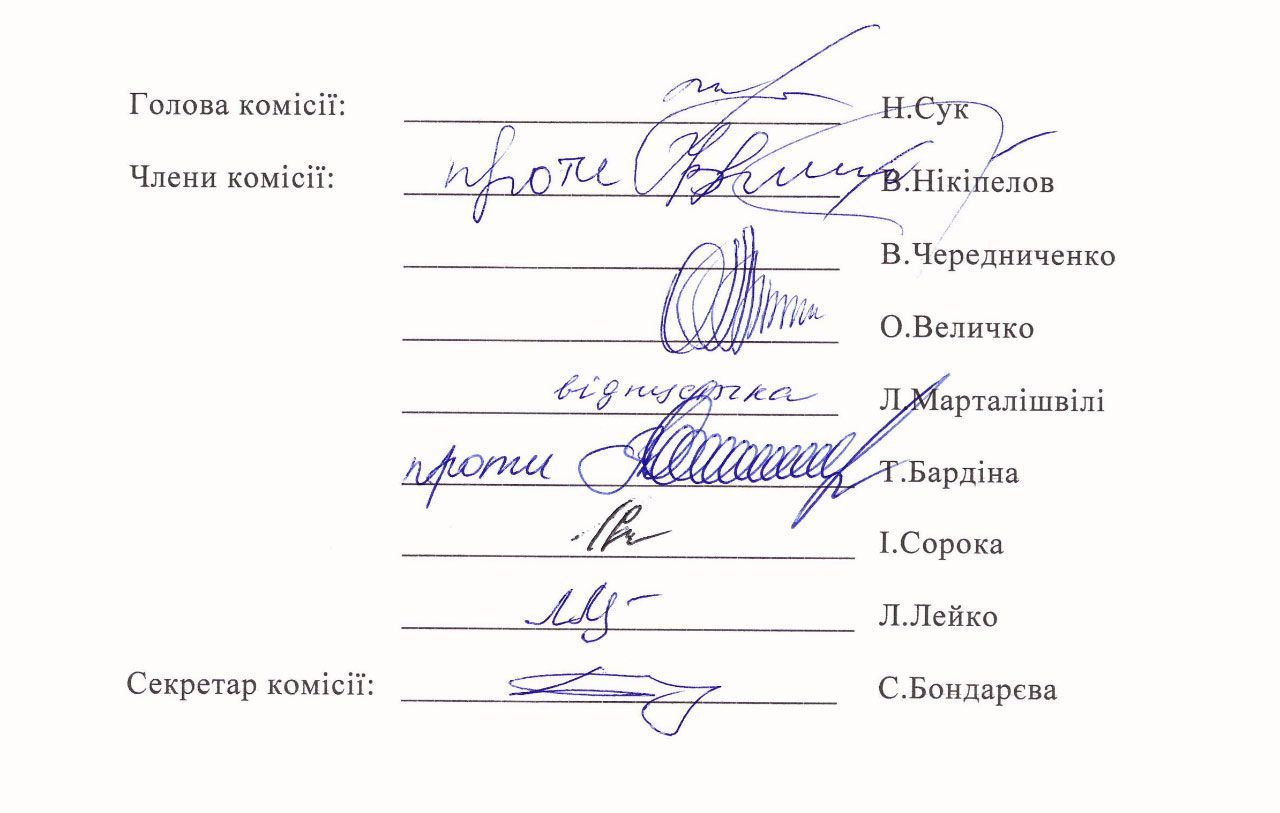 Голова комісії: Н.Сук
Члени комісії: проти В.Нікіпелов
В.Чередниченко
О.Величко
відпустка Л.Марталішвілі
проти Т.Бардіна
І.Сорока
Л.Лейко
Секретар комісії: С.Бондарєва